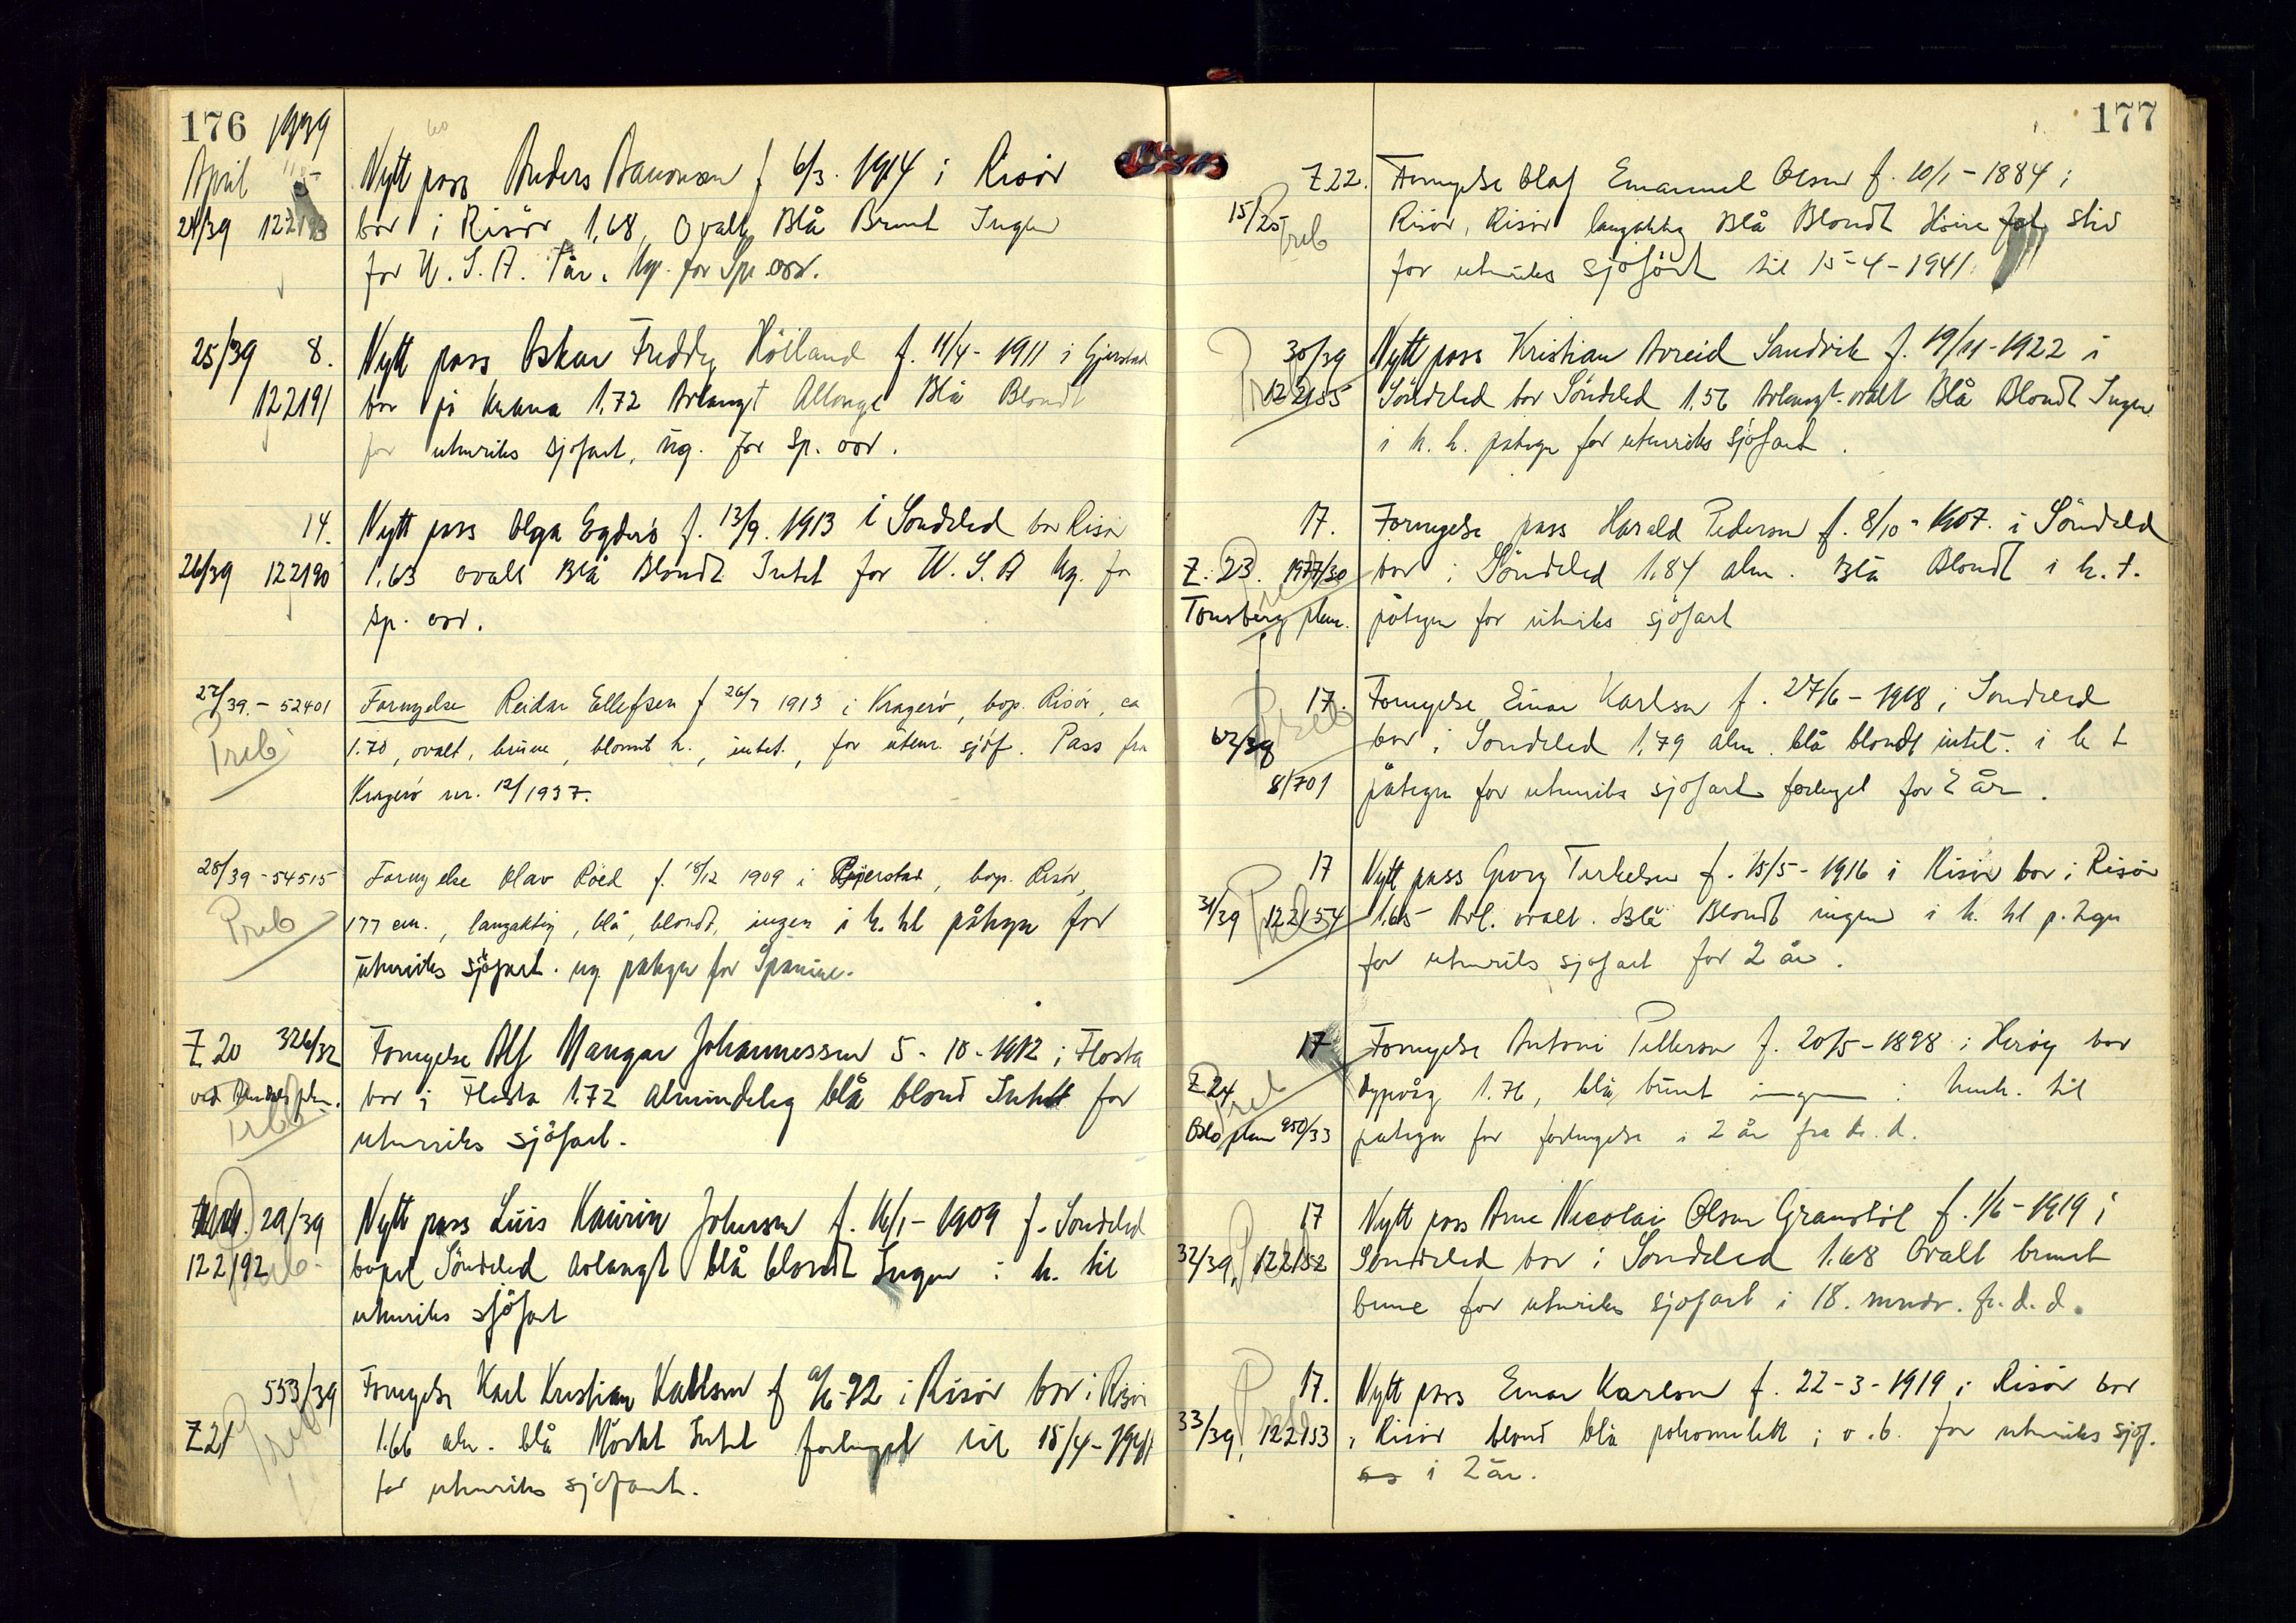 176 1939
April
Nytt pass Anders Aanonsen f 6/3. 1914 i Risör
24/39 122193 bor i Risör 1,68, Ovalt, Blå Brunt Ingen
for U. S. A. 1 år. Ug. for Sp. oor.
25/39 8. Nytt pass Oskar Freddy Höiland f. 11/4 - 1911 i Gjerstad
122191 bor på 1,72 Avlangt Blå Blondt
for utenriks sjöfart, ug. for Sp. oor.
14. Nytt pass Olga Egderö f. 13/9. 1913 i Söndeled bor Risör
26/39 122190 1.63 ovalt Blå Blondt Intet for U. S. A Ug. for
Sp. oor.
27/39. - 52401 Fornyelse Reidar Ellefsen f 26/7 1913 i Kragerö, bop. Risör, ca
Treb 1.70, ovalt, brune, blondt h., intet, for utenr. sjöf. Pass fra
Kragerö nr. 12/1937.
28/39 - 54515 Fornyelse Olav Röed f. 18/12 1909 i Gjerstad, bop. Risör,
Treb 177 cm., langaktig, blå, blondt, ingen i h. hl påtegn for
utenriks sjöfart. ug påtegn for Spanine.
Z 20 326/32 Fornyelse Alf Mangor Johannessen 5 - 10 - 1912 i Flosta
bor i Flosta 1.72 almindelig blå blond Intet for
utenriks sjöfart.
29/39 Nytt pass Luis Kaurin Johnsen f. 16/1 - 1909 f. Söndeled
122192 bopel Söndeled avlangt blå blondt Ingen i h. til
utenriks sjöfart
553/39 Fornyelse Karl Kristian Karlsen f i Risör bor i Risör
Z 21 1.66 alm. blå Mörkt Intet forlenget til 15/4 - 1941
for utenriks sjöfart.
177
Z 22. Fornyelse Olaf Emanuel Olsen f. 10/1 - 1884 i
15/25 Treb Risör, Risör langaktig Blå Blondt Höire fot stiv
for utenriks sjöfart til 15-4-1941.
30/39 Nytt pass Kristian Arreid Sandvik f. 19/11 - 1922 i
122155 Söndeled bor Söndeled 1.56 Avlangt. ovalt Blå Blondt Ingen
i h. h. påtegn for utenriks sjöfart.
17. Fornyelse pass Harald Pedersen f. 8/10 - 1907. i Söndeled
Z. 23. 1977/30 bor i Söndeled 1.84 alm. Blå Blondt i h. t.
Tonsberg pkm. påtegn for utenriks sjöfart
17. Fornyelse Einar Karlsen f. 27/6 - 1918 i Söndeled
bor i Söndeled 1.79 alm. blå blondt intet. i h t
8/701 påtegn for utenriks sjöfart forlenget for 2 år.
17 Nytt pass Georg Terkelsen f. 15/5 - 1916 i Risör bor i Risör
31/39 122154 1.65 Avl. ovalt. Blå Blondt ingen i h. hl p. tegn
for utenriks sjöfart for 2 år.
17 Fornyelse Antoni Pettersen f. 20/5 - 1898 i Heröy bor
Z 24 Treb Dypvåg 1.76, blå, brunt ingen i henh. til
Oslo pkm 950/33 påtegn for forlengelse i 2 år fra d. d.
17 Nytt pass Arne Nicolai Olsen Granstöl f. 1/6 - 1919 i
32/39, 122152 Söndeled bor i Söndeled 1.68 Ovalt brunt
brune for utenriks sjöfart i 18. mndr. fr. d. d.
17. Nytt pass Einar Karlsen f. 22-3-1919 i Risör bor
33/39, 122153 i Risör blond blå i o. b. for utenriks sjöf.
i 2 år.